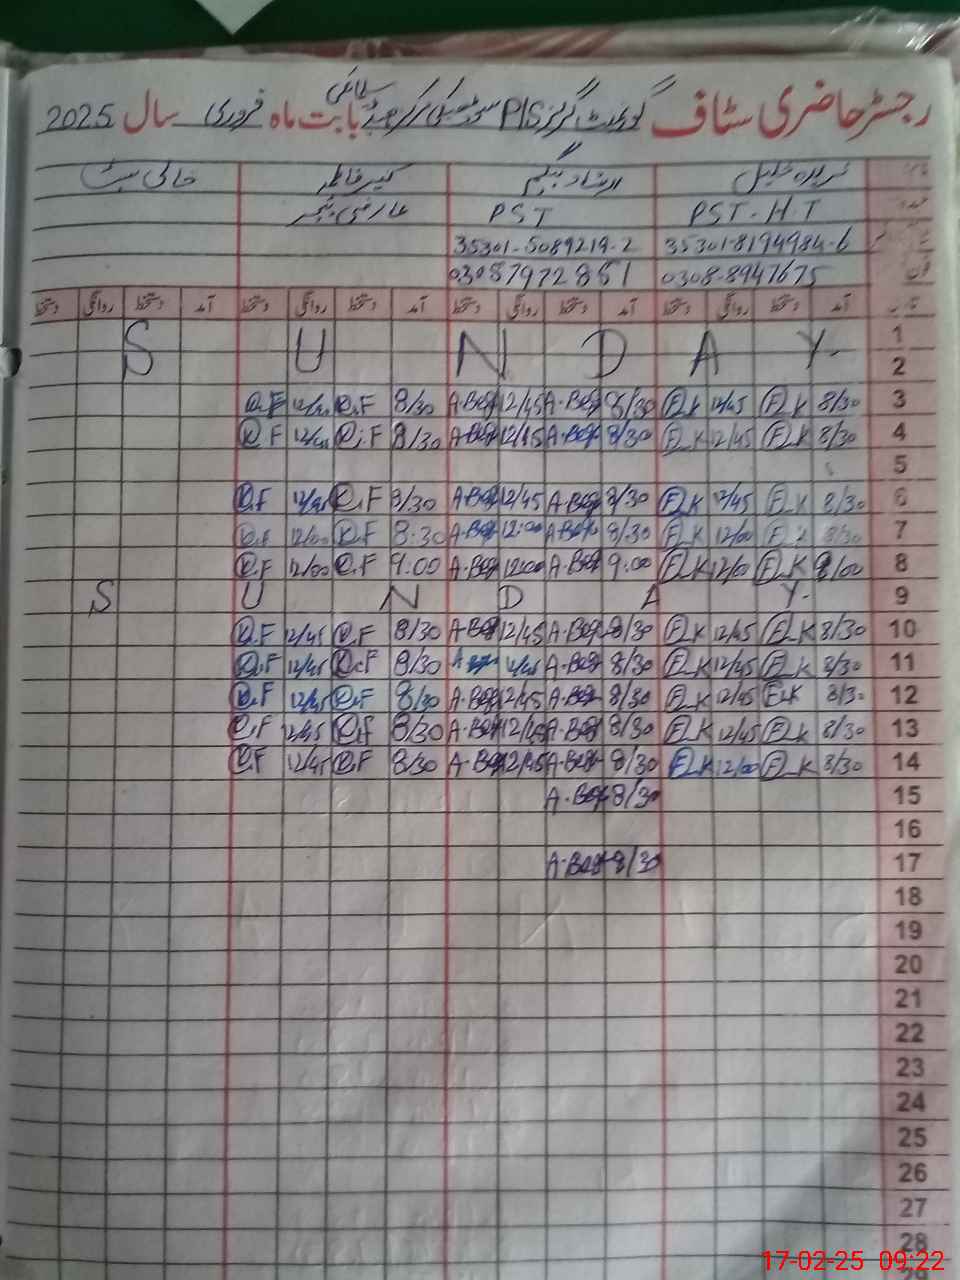 رجسٹر حاضری سٹاف گورنمنٹ گرلز P/S بابت ماہ فروری سال 2025
ارشاد بیگم کنیز فاطمہ خالی سیٹ
PST-H.T PST عارضی ٹیچر
35301-8194984-6 35301-5089219-2
0308-8947675 03057972851
آمد دستخط روانگی دستخط آمد دستخط روانگی دستخط آمد دستخط روانگی دستخط آمد دستخط روانگی دستخط
1 S U N D A Y
2
3 8/30 F_K 12/45 F_K 8/30 A-Beg 12/45 A-Beg 8/30 K.F 12/45 K.F
4 8/30 F_K 12/45 F_K 8/30 A-Beg 12/45 A-Beg 8/30 K.F 12/45 K.F
5
6 8/30 F_K 12/45 F_K 8/30 A-Beg 12/45 A-Beg 8/30 K.F 12/45 K.F
7 8/30 F_K 12/00 F_K 8/30 A-Beg 12:00 A-Beg 8:30 K.F 12/00 K.F
8 9/00 F_K 12/00 F_K 9:00 A-Beg 12:00 A-Beg 9:00 K.F 12/00 K.F
9 S U N D A Y
10 8/30 F_K 12/45 F_K 8/30 A-Beg 12/45 A-Beg 8/30 K.F 12/45 K.F
11 8/30 F_K 12/45 F_K 8/30 A-Beg 12/45 A-Beg 8/30 K.F 12/45 K.F
12 8/30 F_K 12/45 F_K 8/30 A-Beg 12/45 A-Beg 8/30 K.F 12/45 K.F
13 8/30 F_K 12/45 F_K 8/30 A-Beg 12/45 A-Beg 8/30 K.F 12/45 K.F
14 8/30 F_K 12/00 F_K 8/30 A-Beg 12/45 A-Beg 8/30 K.F 12/45 K.F
15 8/30 A-Beg
16
17 8/30 A-Beg
18
19
20
21
22
23
24
25
26
27
28
17-02-25 09:22